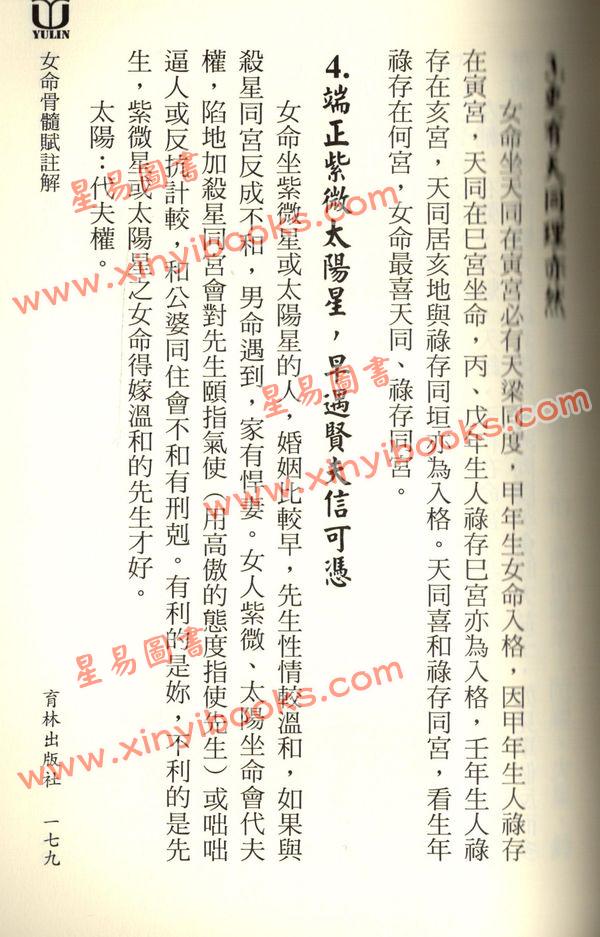 3.更有天同理亦然
女命坐天同在寅宮必有天梁同度，甲年生女命入格，因甲年生人祿存
在寅宮，天同在巳宮坐命，丙、戊年生人祿存巳宮亦為入格，壬年生人祿
存在亥宮，天同居亥地與祿存同垣亦為入格。天同喜和祿存同宮，看生年
祿存在何宮，女命最喜天同、祿存同宮。
4.端正紫微太陽星，早遇賢夫信可憑
女命坐紫微星或太陽星的人，婚姻比較早，先生性情較溫和，如果與
殺星同宮反成不和，男命遇到，家有悍妻。女人紫微、太陽坐命會代夫
權，陷地加殺星同宮會對先生頤指氣使（用高傲的態度指使先生）或咄咄
逼人或反抗計較，和公婆同住會不和有刑剋。有利的是妳，不利的是先
生，紫微星或太陽星之女命得嫁溫和的先生才好。
太陽：代夫權。
YULIN
女命骨髓賦註解
育林出版社 一七九
星易圖書
www.xinyibooks.com
星易圖書
www.xinyibooks.com
星易圖書
www.xinyibooks.com
星易圖書
www.xinyibooks.com